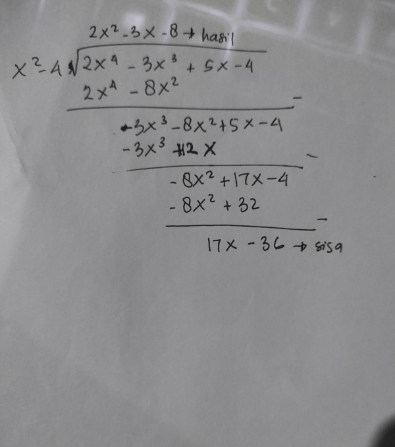 2x² - 3x - 8 → hasil
x² - 4 √ 2x⁴ - 3x³ + 5x - 4
2x⁴ - 8x² -
- 3x³ - 8x² + 5x - 4
- 3x³ + 12x -
- 8x² + 17x - 4
- 8x² + 32 -
17x - 36 → sisa